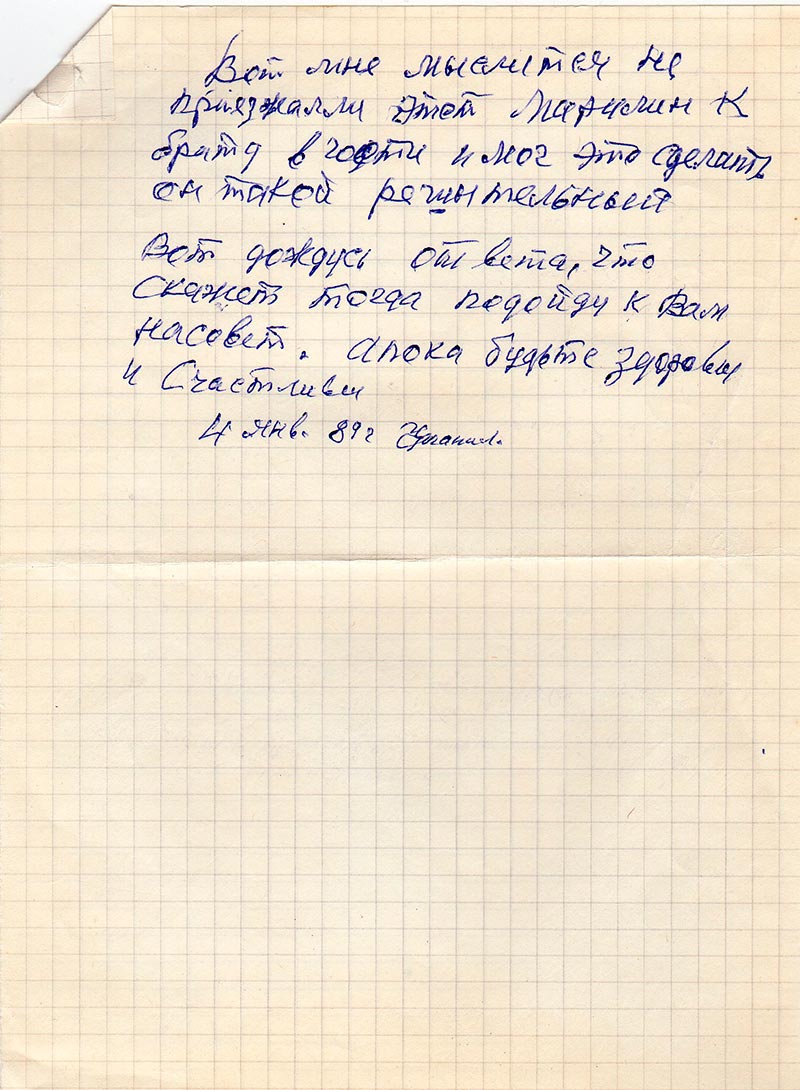 Вот мне мыслится не
приезжалли этот Марулин к
брату в гости и мог это сделать
он такой решытельный
Вот дождусь ответа, что
скажет тогда подойду к Вам
насовет. апока будьте здоровы
и Счастливы
4 янв. 89г